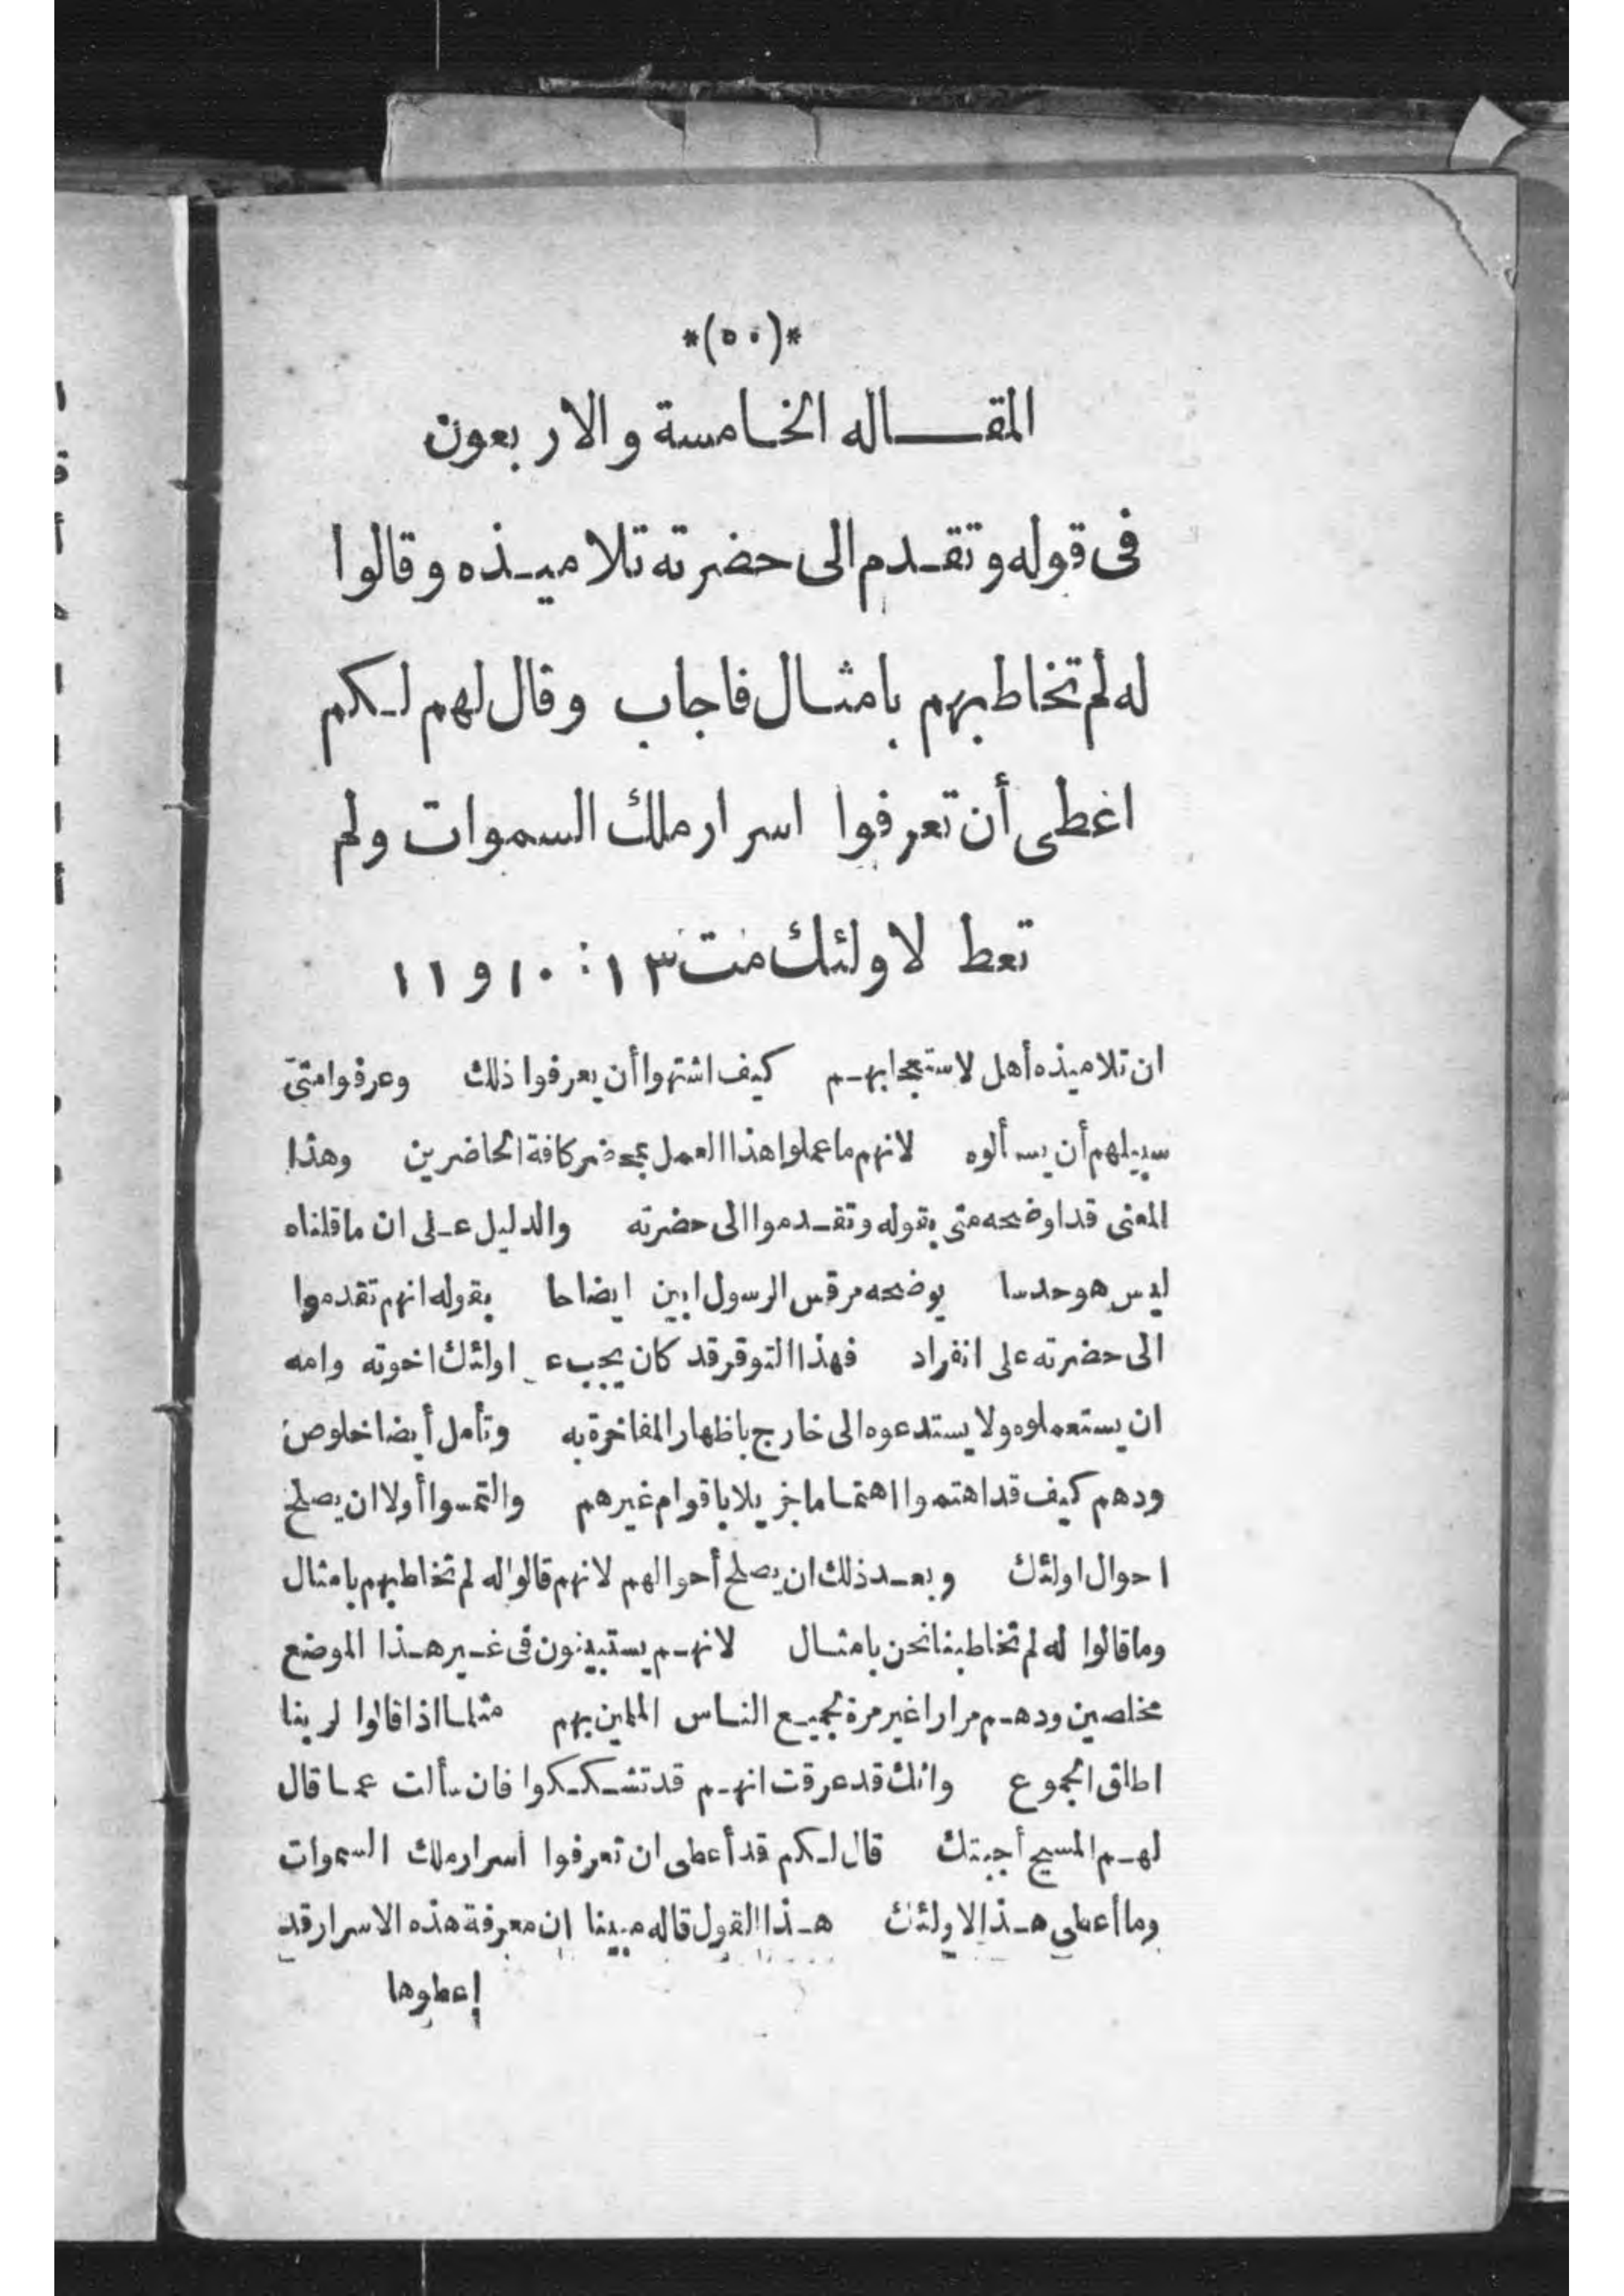 *(٥٠)*
المقاله الخامسة والاربعون
فى قوله وتقدم الى حضرته تلاميذه وقالوا
له لم تخاطبهم بامثال فاجاب وقال لهم لكم
اغطى أن تعرفوا اسرار ملك السموات ولم
تعط لاولئك مت ١٣ : ١٠ و ١١
ان تلاميذه أهل لاستعجابهم كيف اشتهوا أن يعرفوا ذلك وعرفوا متى
سبيلهم أن يسألوه لانهم ما عملوا هذا العمل بمحضر كافة الحاضرين وهذا
المعنى قد اوضحه متى بقوله وتقدموا الى حضرته والدليل على ان ما قلناه
ليس هو حدسا يوضحه مرقس الرسول ابين ايضاحا بقوله انهم تقدموا
الى حضرته على انفراد فهذا التوقر قد كان يجب اولئك اخوته وامه
ان يستعملوه ولا يستدعوه الى خارج باظهار المفاخرة به وتأمل أيضا خلوص
ودهم كيف قد اهتموا اهتماما جزيلا باقوام غيرهم والتمسوا أولا ان يصلح
احوال اولئك وبعد ذلك ان يصلح أحوالهم لانهم قالوا له لم تخاطبهم بامثال
وما قالوا له لم تخاطبنا نحن بامثال لانهم يستبينون فى غير هذا الموضع
مخلصين ودهم مرارا غير مرة لجميع الناس الملمين بهم مثلما اذا قالوا لربنا
اطلق الجموع وانك قد عرفت انهم قد تشككوا فان سألت عما قال
لهم المسيح أجبتك قال لكم قد أعطى ان تعرفوا أسرار ملك السموات
وما أعطى هذا لاولئك هذا القول قاله مبينا ان معرفة هذه الاسرار قد
إعطوها